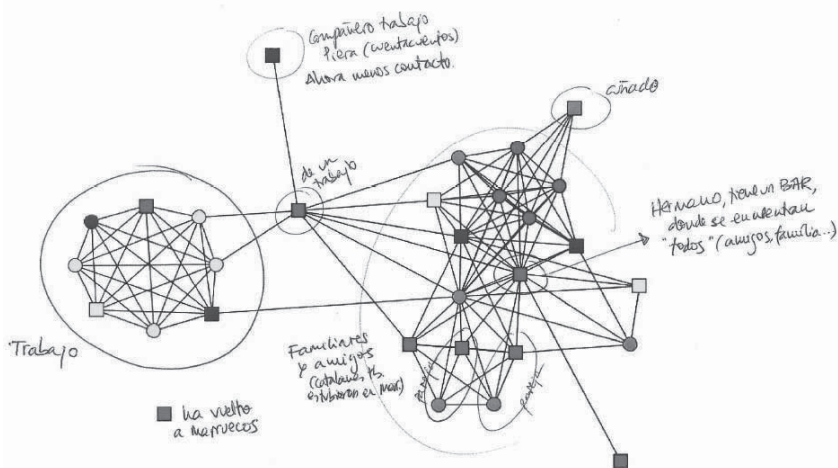 Compañero trabajo
Piera (cuentacuentos)
Ahora menos contacto.
cuñado
de un
trabajo
Hermano, tiene un BAR,
donde se encuentran
"todos" (amigos, familia...)
Trabajo
Familiares
y amigos
(catalanes tb.
estuvieron en Mar.)
pareja
pareja
ha vuelto
a marruecos